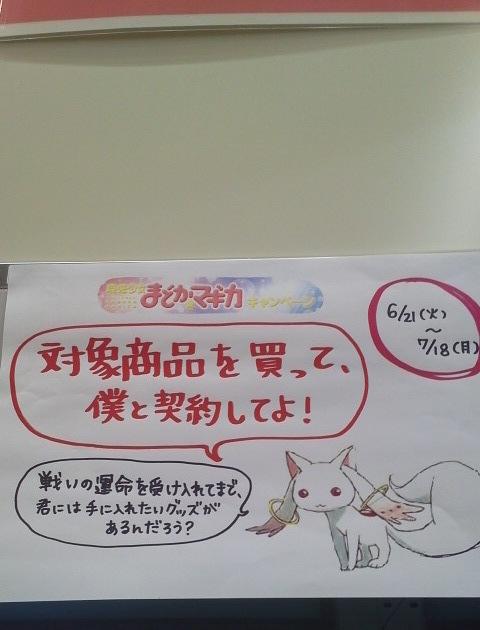 魔法少女
まどか☆マギカ キャンペーン
6/21(火)
～
7/18(月)
対象商品を買って、
僕と契約してよ！
戦いの運命を受け入れてまで、
君には手に入れたいグッズが
あるんだろう？